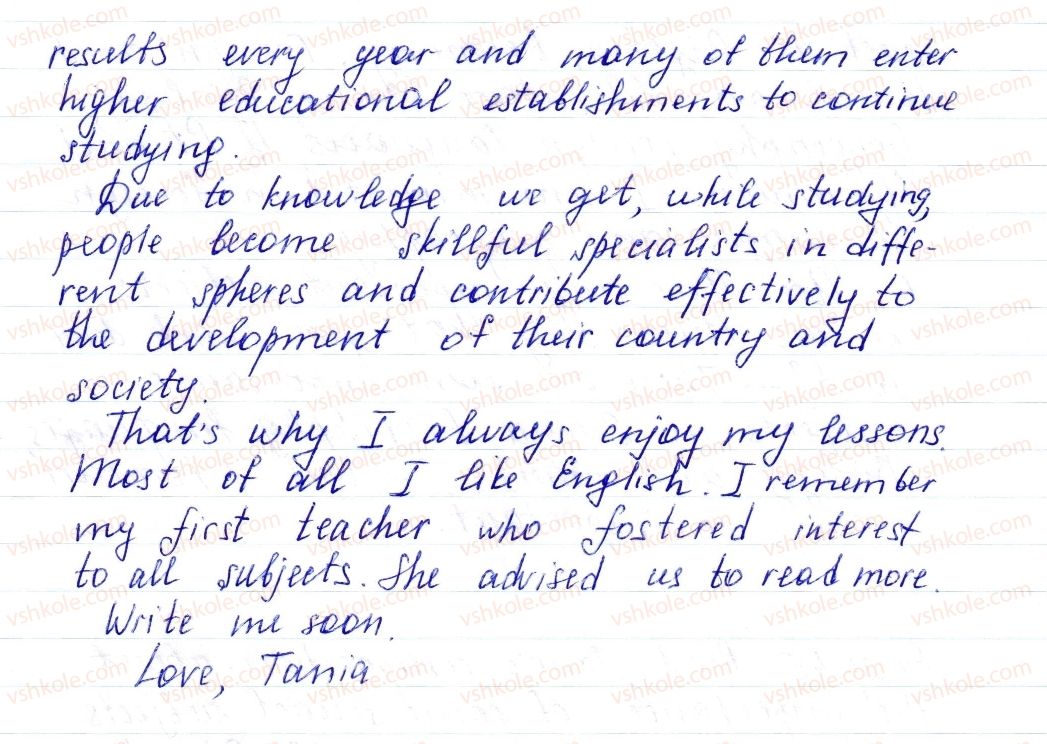 results every year and many of them enter
higher educational establishments to continue
studying.
Due to knowledge we get, while studying,
people become skillful specialists in diffe-
rent spheres and contribute effectively to
the development of their country and
society.
That's why I always enjoy my lessons.
Most of all I like English. I remember
my first teacher who fostered interest
to all subjects. She advised us to read more.
Write me soon.
Love, Tania
vshkole.com